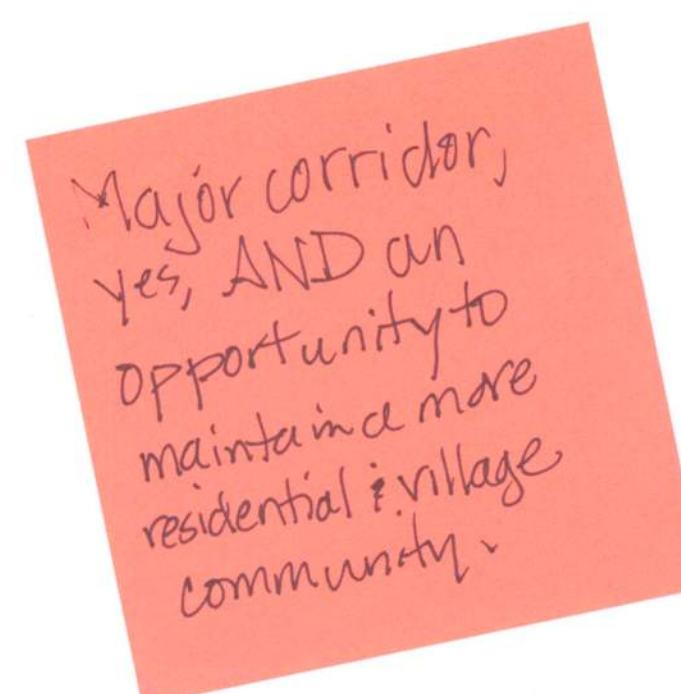 Major corridor,
yes, AND an
opportunity to
maintain a more
residential & village
community.